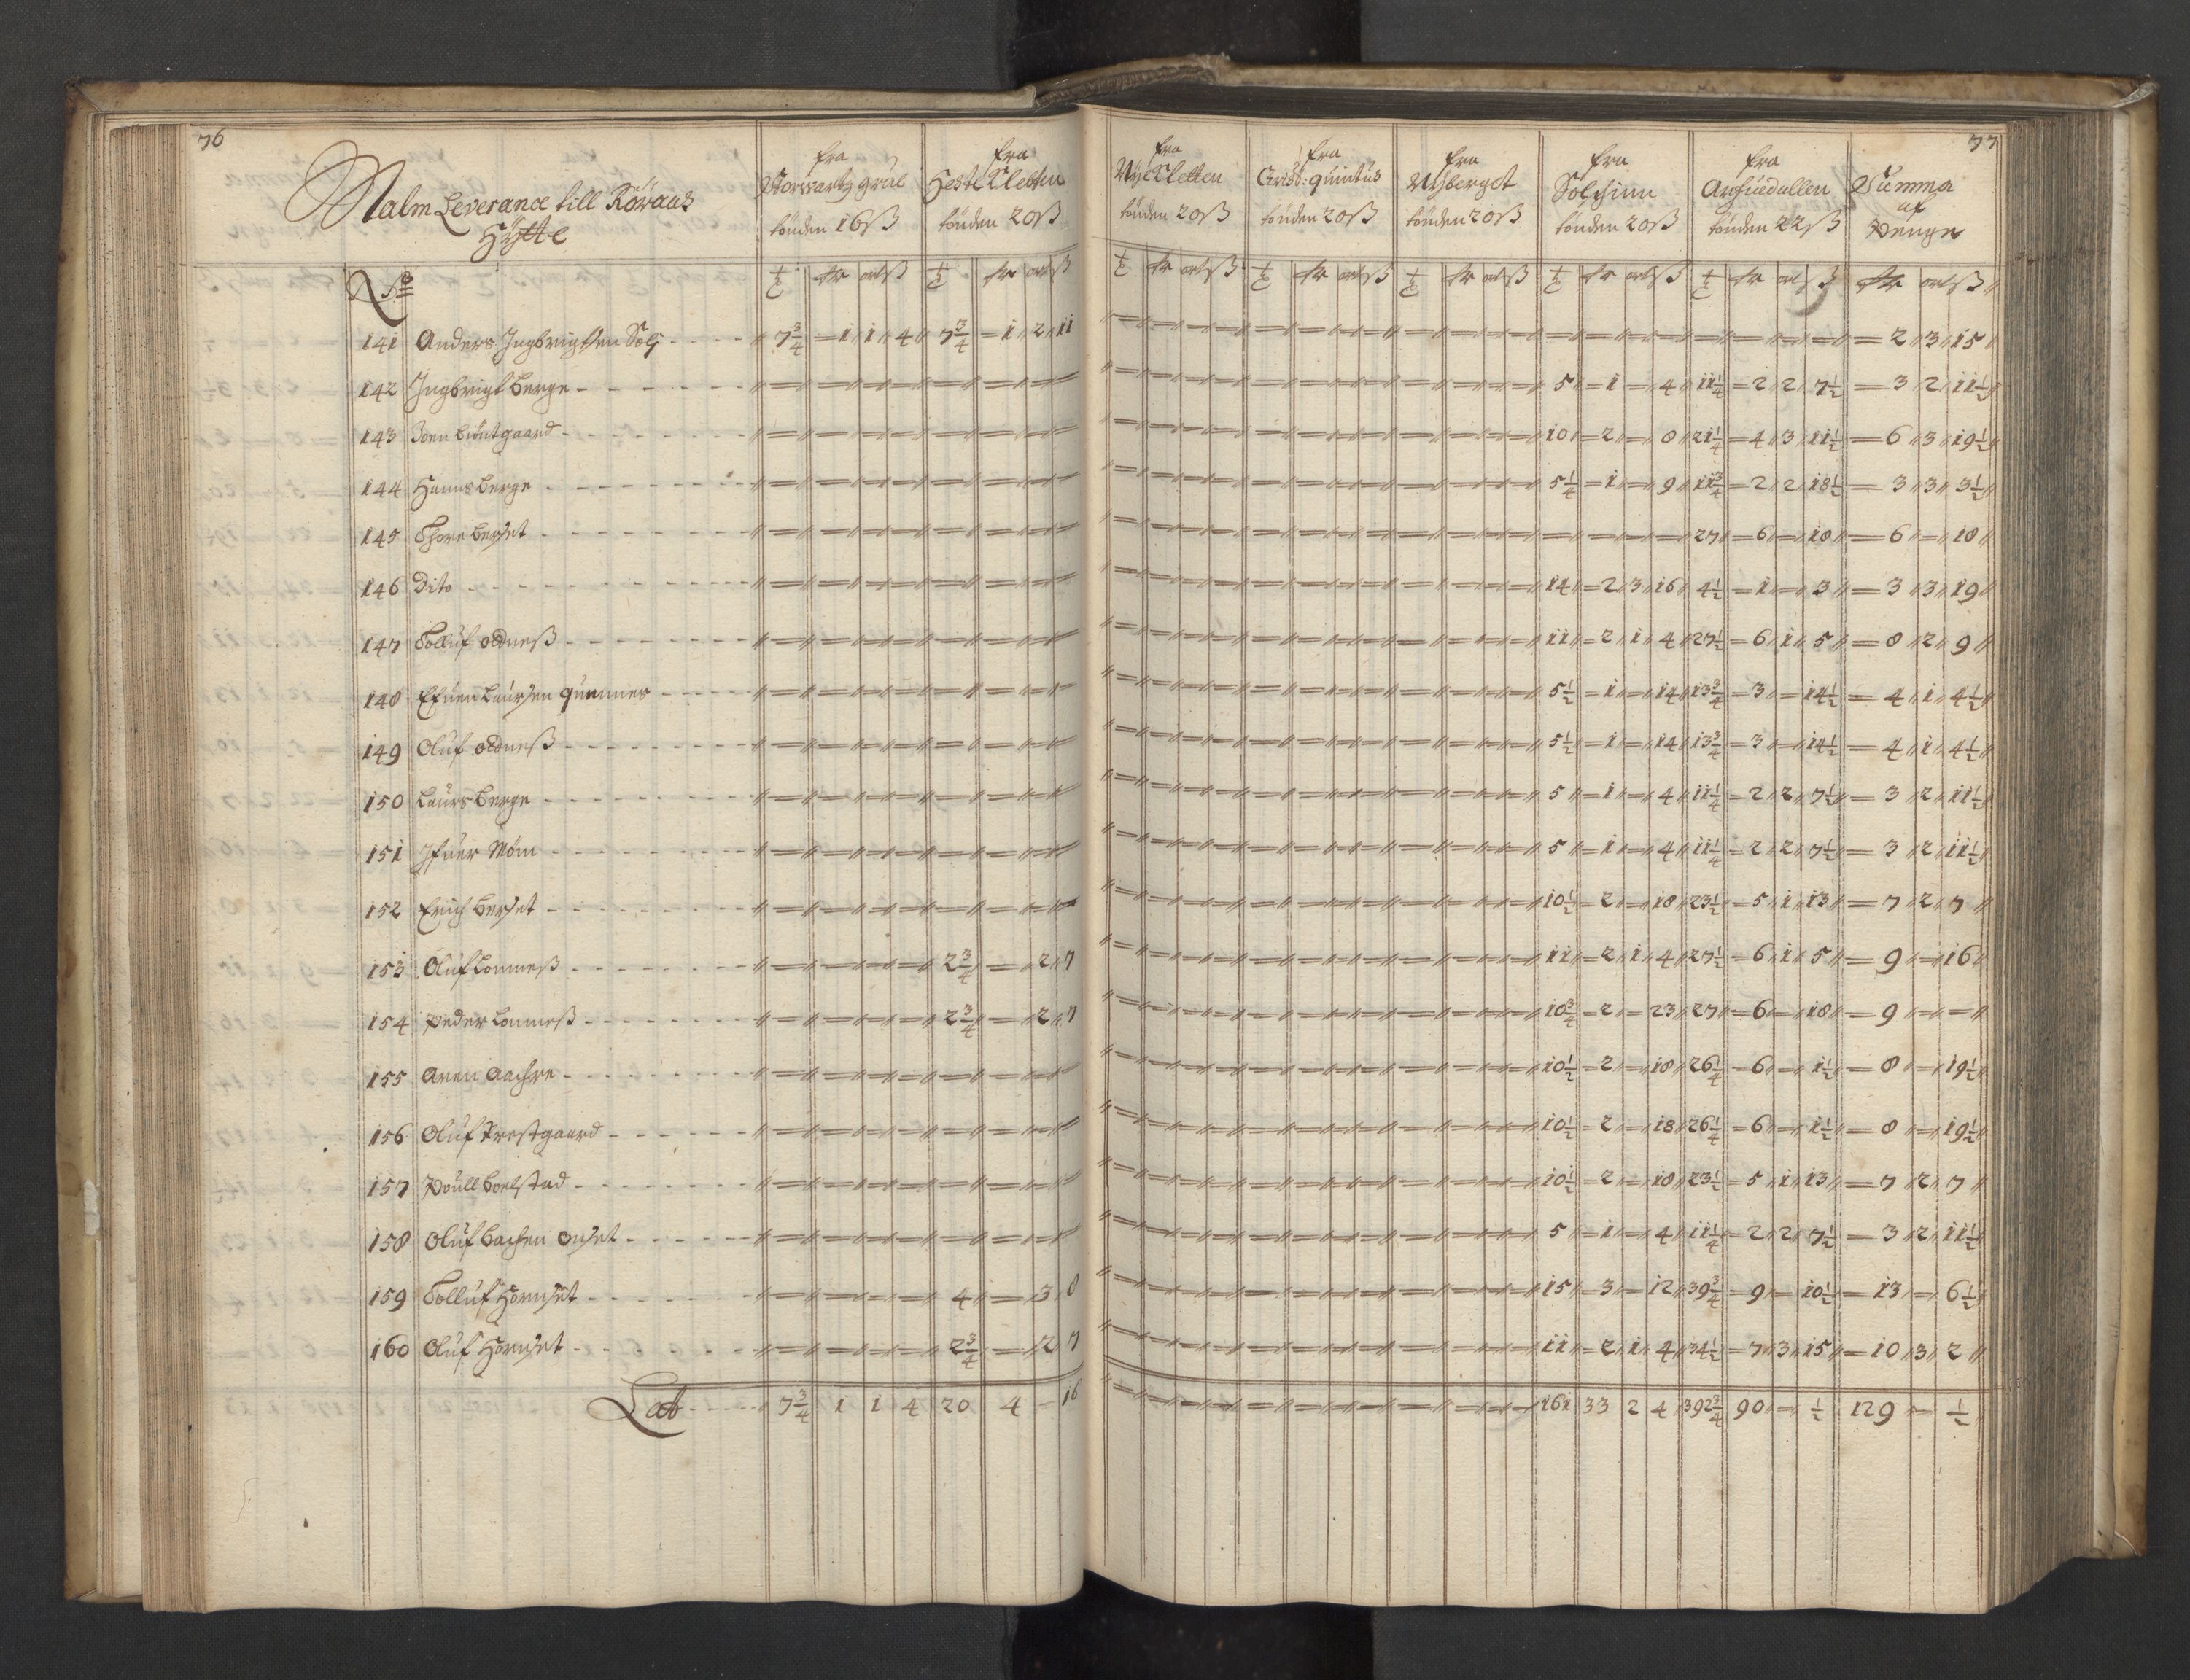 76
77
Malm Leverance till Röraas
Hÿtte
fra Storwartz grue tönden 16 ß
fra HesteKletten tönden 20 ß
fra NÿeKletten tönden 20 ß
fra Crist: quintus tönden 20 ß
fra Nÿberget tönden 20 ß
fra tönden 20 ß
fra tönden 22 ß
Summa af Penge
No
141 Anders Ingbrigtsen 7¾ 1 1 4 7¾ 1 2 11 2 3 15
142 Ingbrigt Berge 5 1 4 11¼ 2 2 7½ 3 2 11½
143 Joen 10 2 8 21¼ 4 3 11½ 6 3 19½
144 Hanns Berge 5¼ 1 9 11¾ 2 2 18½ 3 3 3½
145 Thore Berset 27 6 18 6 18
146 Dito 14 2 3 16 4½ 1 3 3 3 19
147 Tolluf odneß 11 2 1 4 27½ 6 1 5 8 2 9
148 Efuen Laursen 5½ 1 14 13¾ 3 14½ 4 1 4½
149 Oluf odneß 5½ 1 14 13¾ 3 14½ 4 1 4½
150 Laurs Berge 5 1 4 11¼ 2 2 7½ 3 2 11½
151 Ifuer Moen 5 1 4 11¼ 2 2 7½ 3 2 11½
152 Erich Berset 10½ 2 18 23½ 5 1 13 7 2 7
153 Oluf Lomneß 2¾ 2 7 11 2 1 4 27½ 6 1 5 9 16
154 Peder Lomneß 2¾ 2 7 10¾ 2 23 27 6 18 9
155 Aren Aachre 10½ 2 18 26¼ 6 1½ 8 19½
156 Oluf Prestgaard 10½ 2 18 26¼ 6 1½ 8 19½
157 Poull Bolstad 10½ 2 18 23½ 5 1 13 7 2 7
158 Oluf Bachen 5 1 4 11¼ 2 2 7½ 3 2 11½
159 Tolluf Hornset 4 3 8 15 3 12 39¾ 9 10½ 13 6½
160 Oluf Hornset 2¾ 2 7 11 2 1 4 34½ 7 3 15 10 3 2
Lat 7¾ 1 1 4 20 4 16 161 33 2 4 392¾ 90 ½ 129 ½